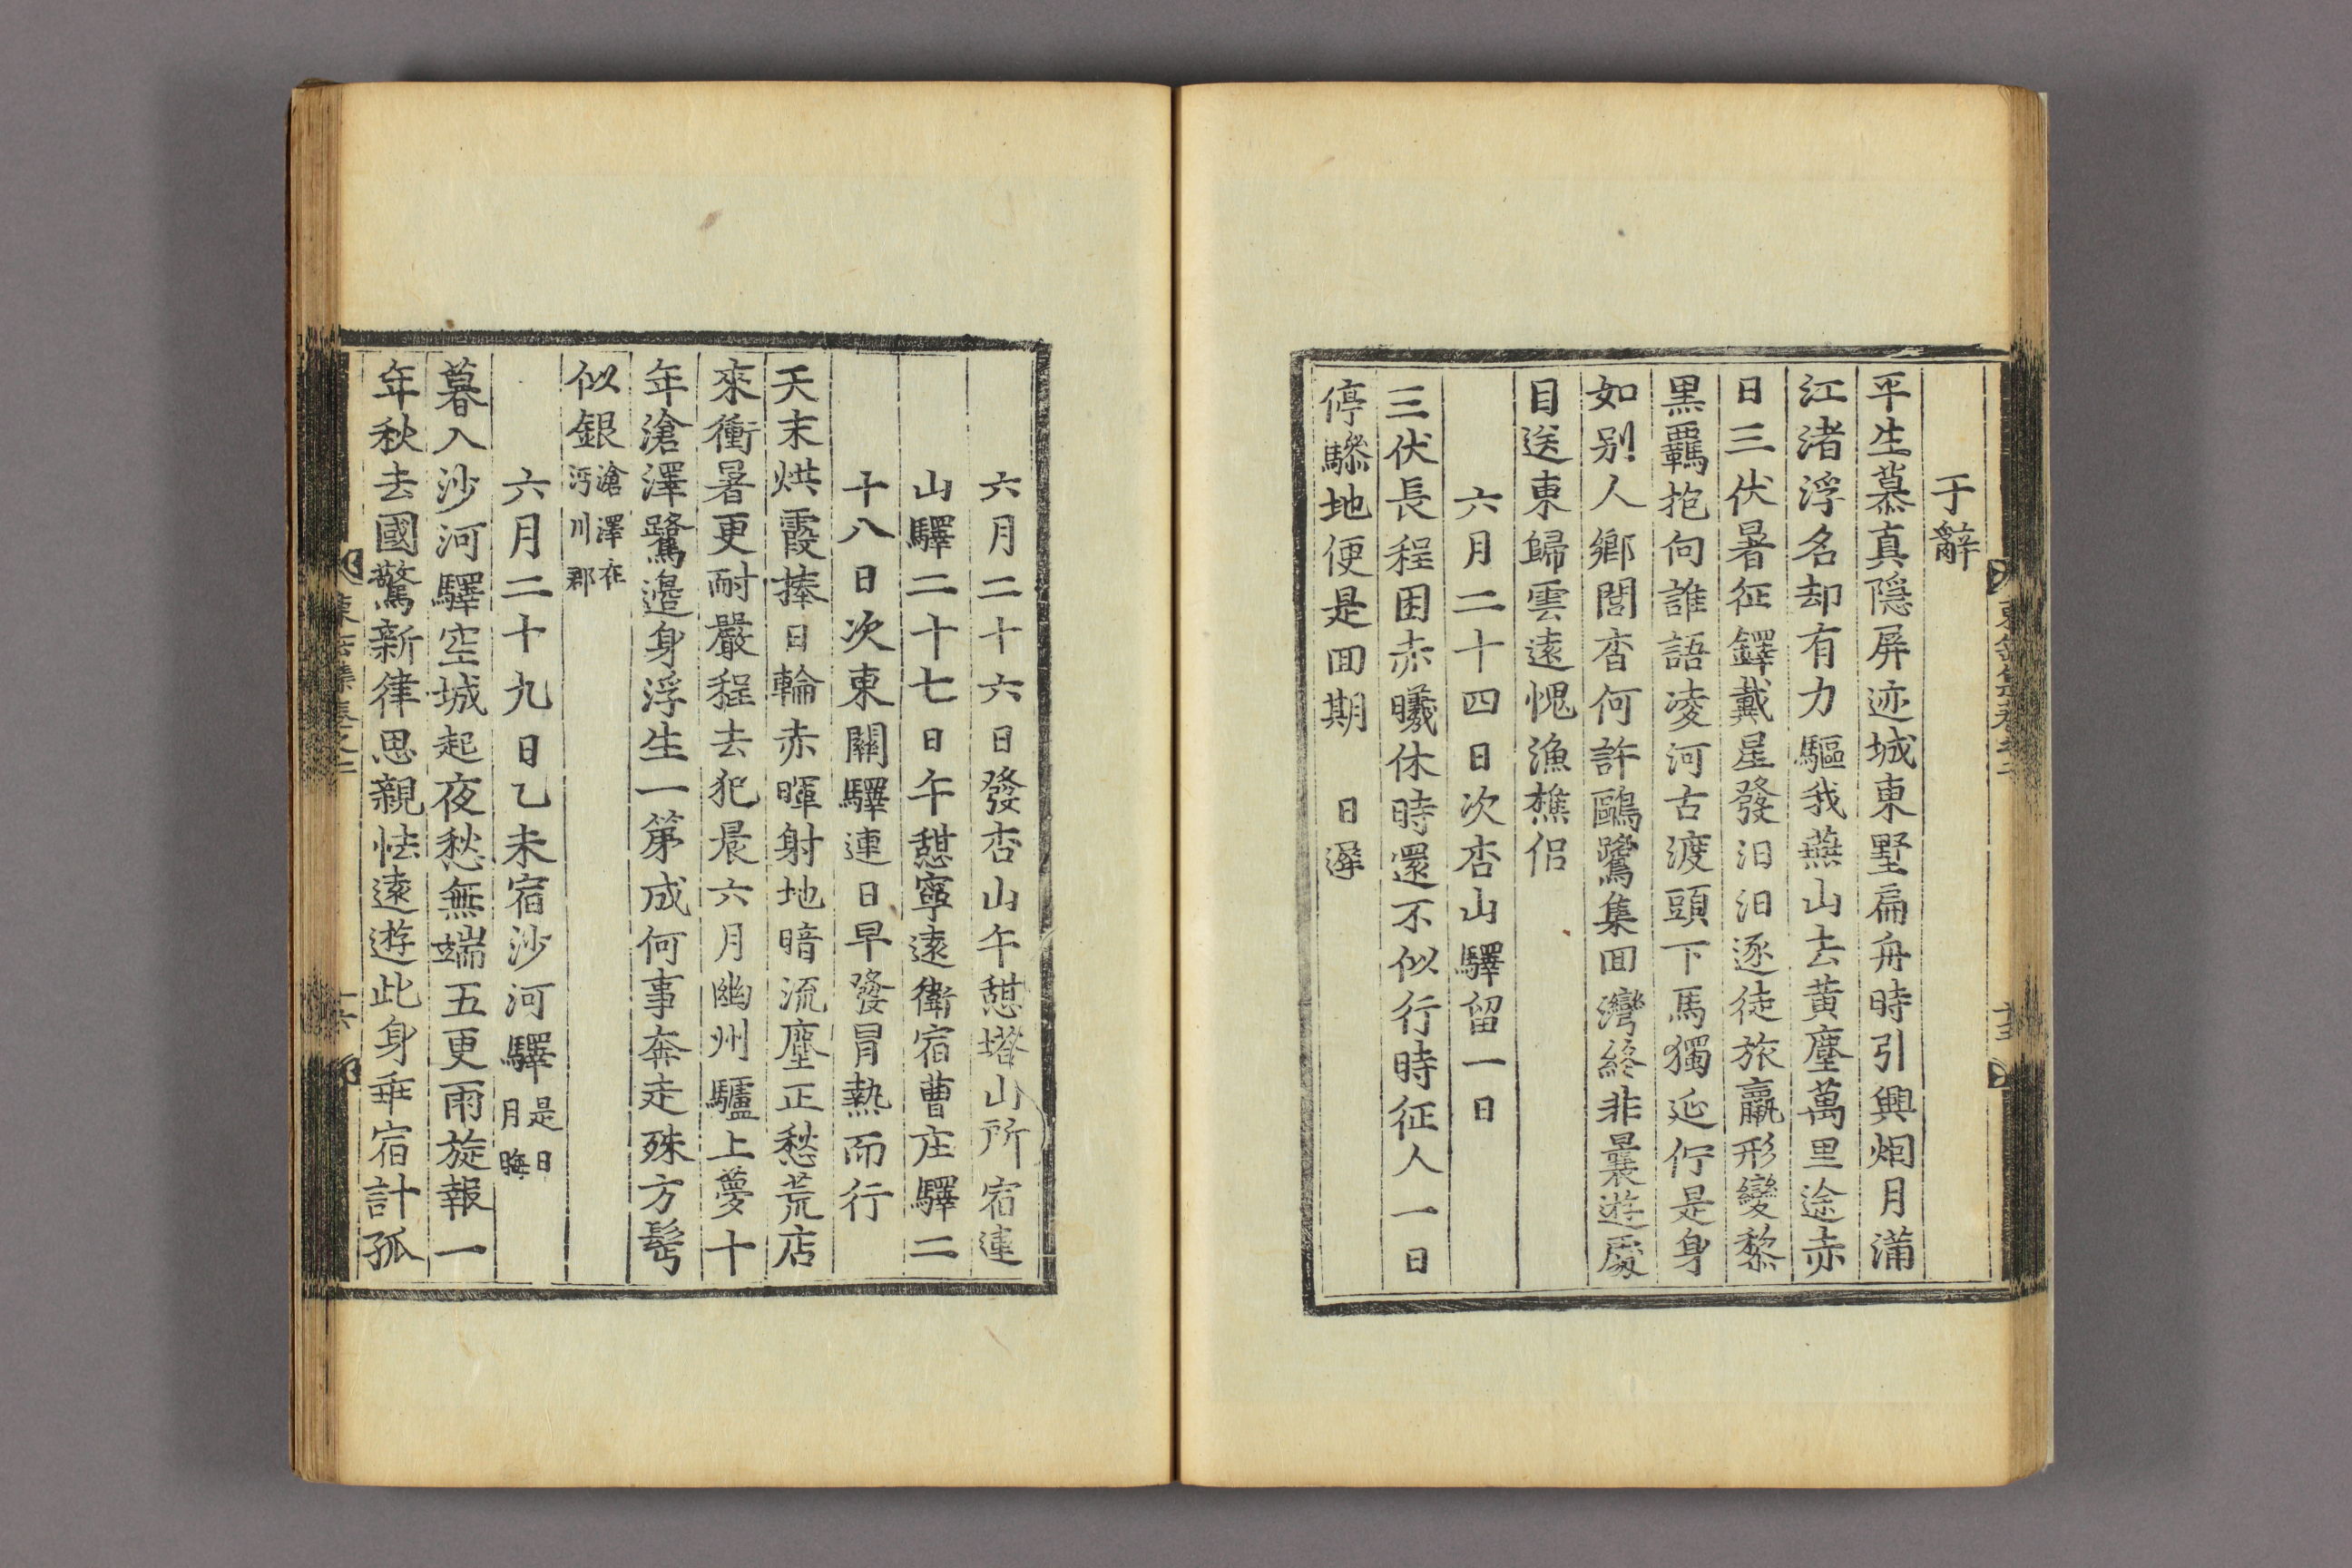 于辭
平生慕真隱屏迹城東墅扁舟時引興烟月滿
江渚浮名却有力驅我燕山去黃塵萬里途赤
日三伏暑征鐸戴星發汨汨逐徒旅羸形變黎
黑羈抱向誰語凌河古渡頭下馬獨延佇是身
如別人鄉閭杳何許鷗鷺集回灣終非曩遊處
目送東歸雲遠愧漁樵侶
六月二十四日次杏山驛留一日
三伏長程困赤曦休時還不似行時征人一日
停驂地便是回期一日遲
六月二十六日發杏山午憇塔山所宿連
山驛二十七日午憇寧遠衛宿曹庄驛二
十八日次東關驛連日早發冒熱而行
天末烘霞捧日輪赤暉射地暗流塵正愁荒店
來衝暑更耐嚴程去犯晨六月幽州驢上夢十
年滄澤鷺邉身浮生一第成何事奔走殊方髩
似銀滄澤在沔川郡
六月二十九日乙未宿沙河驛是日月晦
暮入沙河驛空城起夜愁無端五更雨旋報一
年秋去國驚新律思親怯遠遊此身垂宿計孤